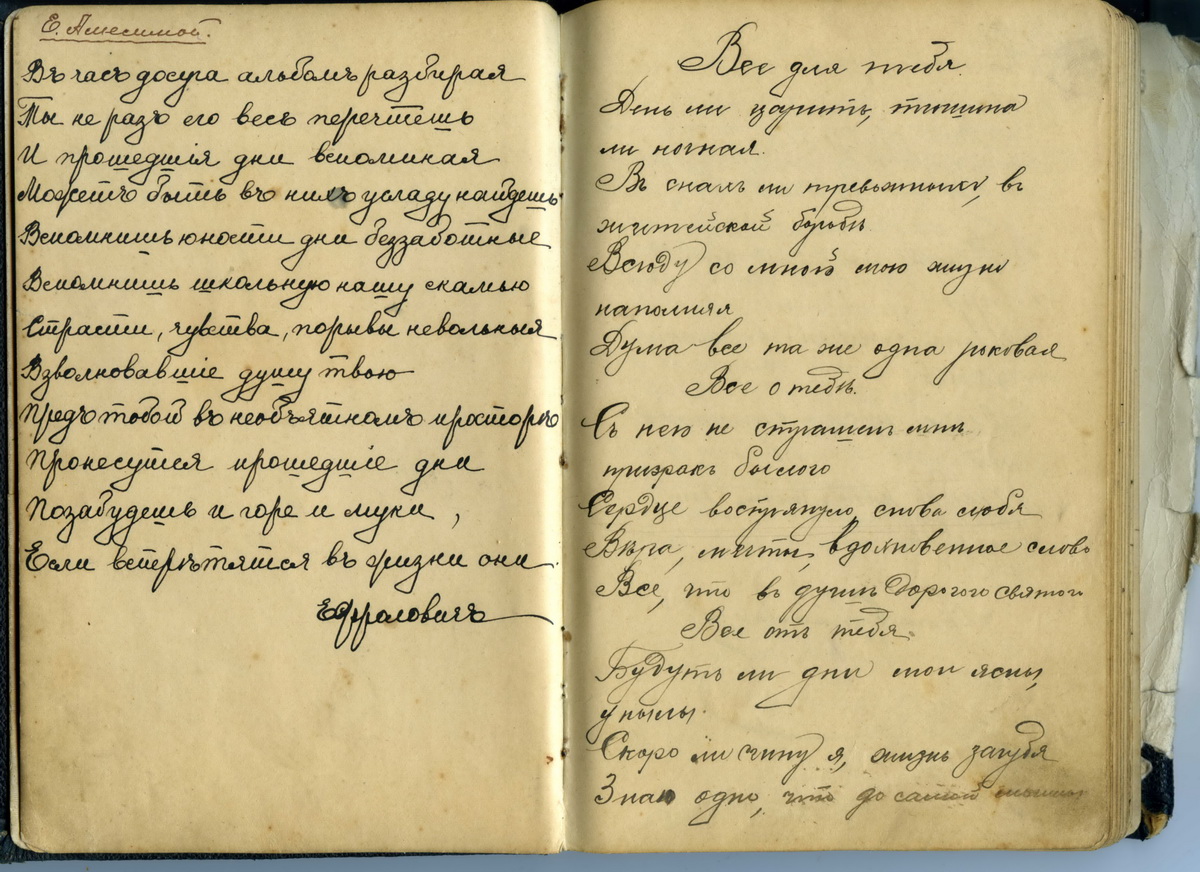 Е. Анисимой.
Въ часъ досуга альбомъ разбирая
Ты не разъ его весь перечтешь
И прошедшія дни вспоминая
Можетъ быть въ нихъ усладу найдешь.
Вспомнишь юности дни беззаботные
Вспомнишь школьную нашу скамью
Страсти, чувства, порывы невольныя
Взволновавшіе душу твою
Предъ тобой въ необъятномъ просторѣ
Пронесутся прошедшіе дни
Позабудешь и горе и муки,
Если встерѣтятся въ жизни они.
ЕФроловичъ
Все для тебя.
День ли царитъ, тишина
ли ночная.
Въ снахъ ли тревожныхъ, въ
житейской борьбѣ
Всюду со мной мою жизнь
наполняя
Дума все та же одна роковая
Все о тебѣ.
Съ нею не страшенъ мнѣ
призракъ былого
Сердце воспрянуло снова любя
Вѣра, мечты, вдохновенное слово
Все, что въ душѣ дорогого святого
Все отъ тебя.
Будутъ ли дни мои ясны,
унылы.
Скоро ли сгину я, жизнь загубя
Знаю одно, что до самой могилы